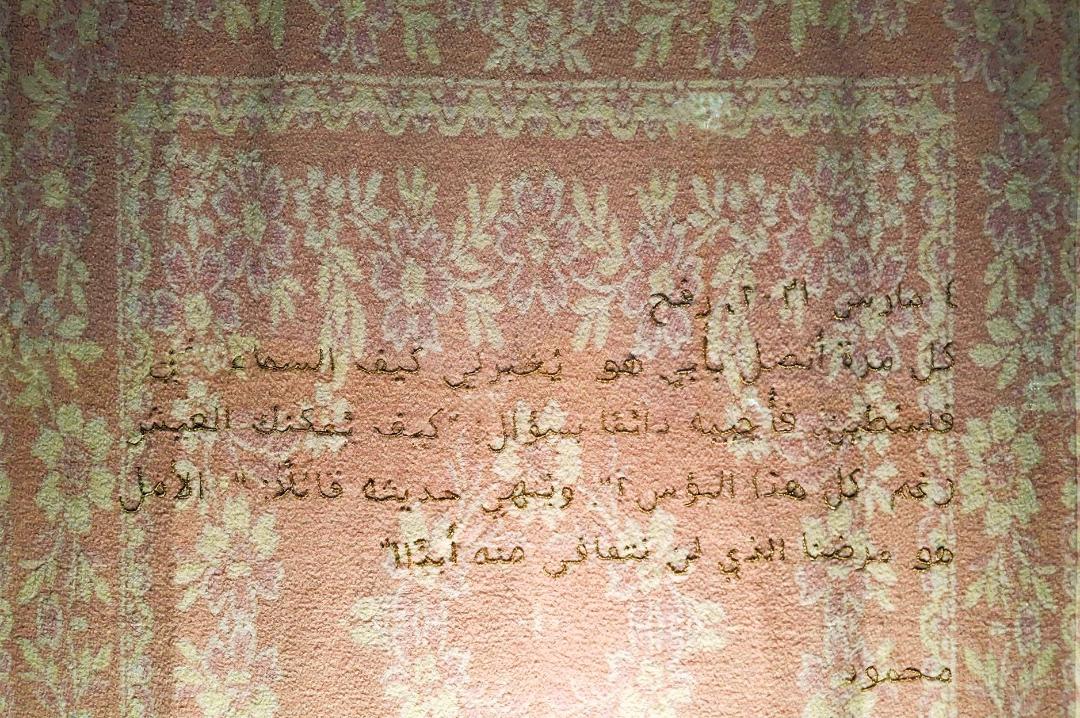 ٤ مارس ٢٠٢١، رفح
كل مرة أتصل بأبي هو يُخبرني كيف السماء في
فلسطين، فأجيبه دائمًا بسؤال: "كيف يُمكنك العيش
رغم كل هذا البؤس؟" وينهي حديثه قائلًا: "الأمل
هو مرضنا الذي لن نتعافى منه أبدًا!"
محمود